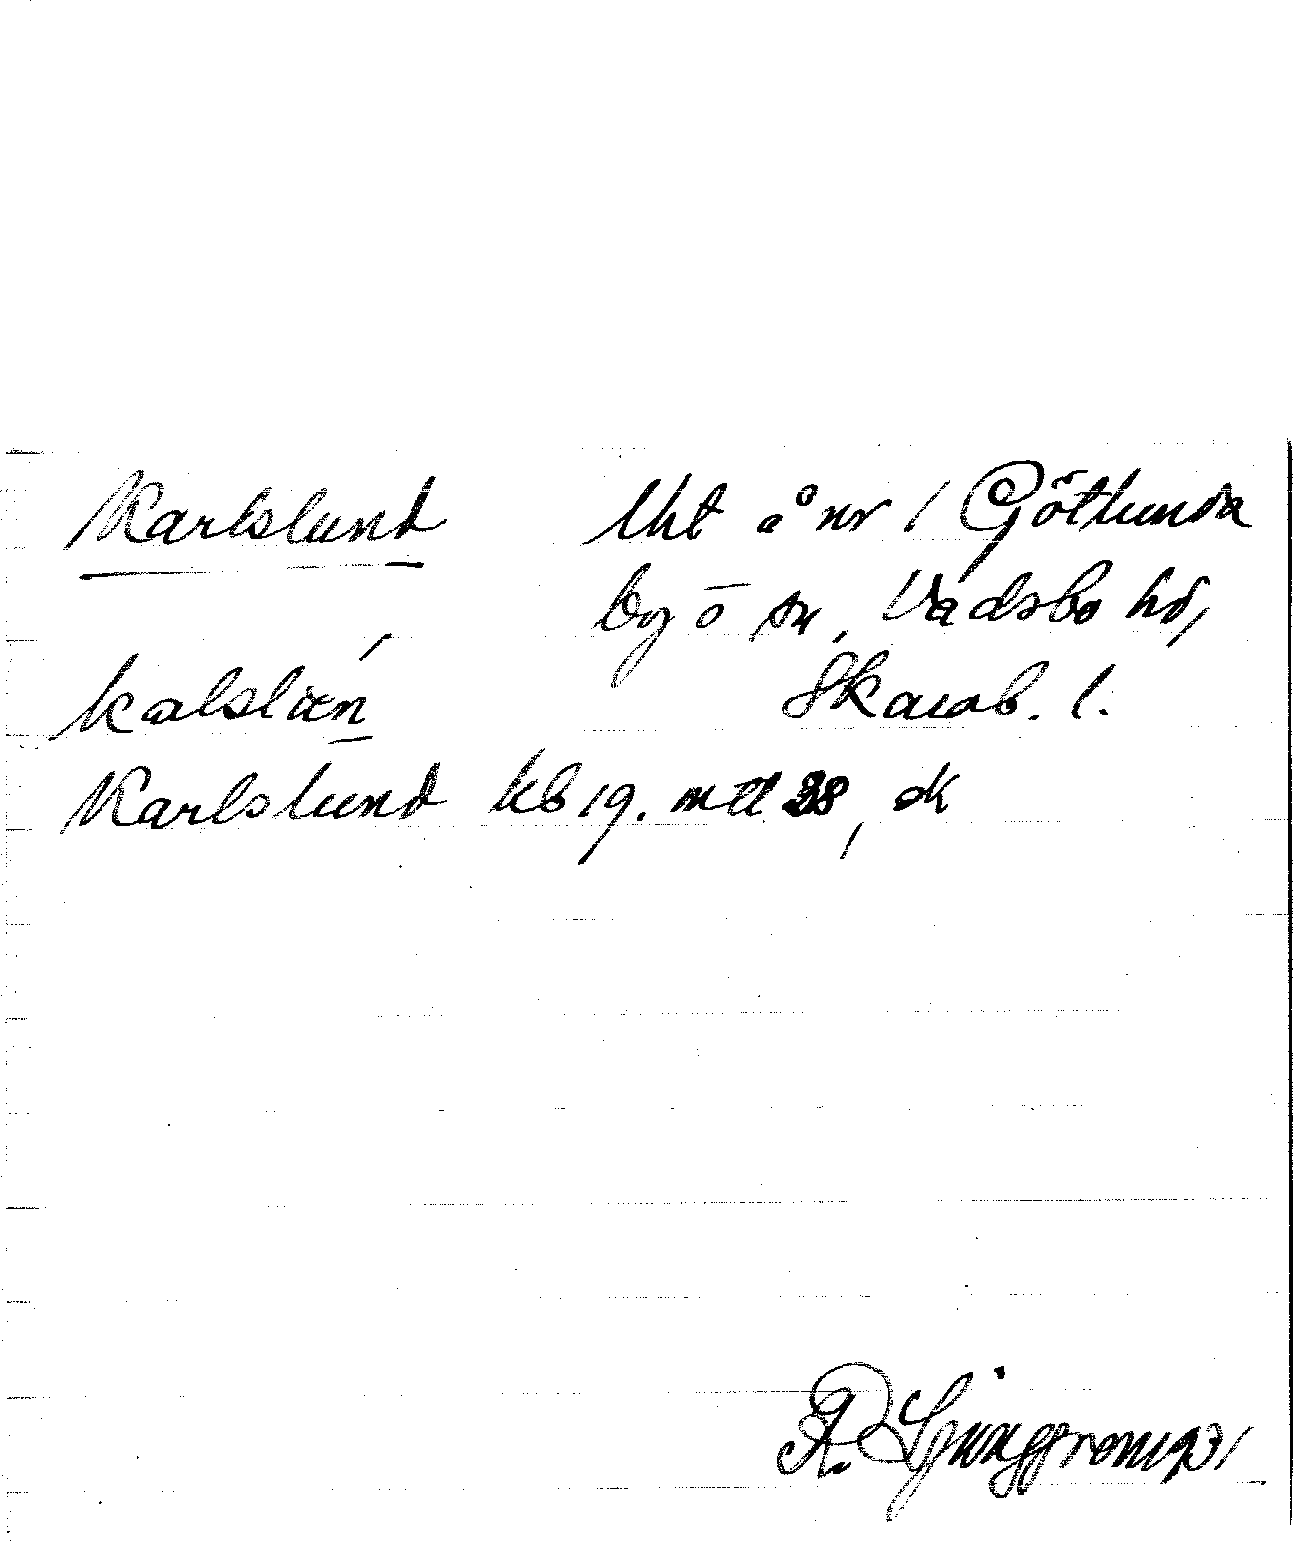 Karlslund Uht å nr 1 Götlunda
by o sn, Vadsbo hd,
kalslæn Skarab. l.
Karlslund kb 19. mtl 28, dk
R. Ljunggren 1931